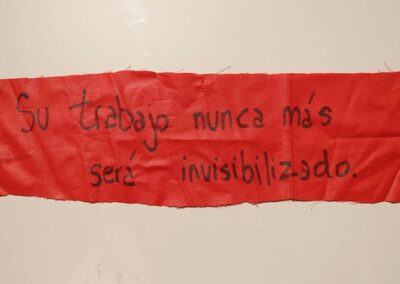 Su trabajo nunca más
será invisibilizado.